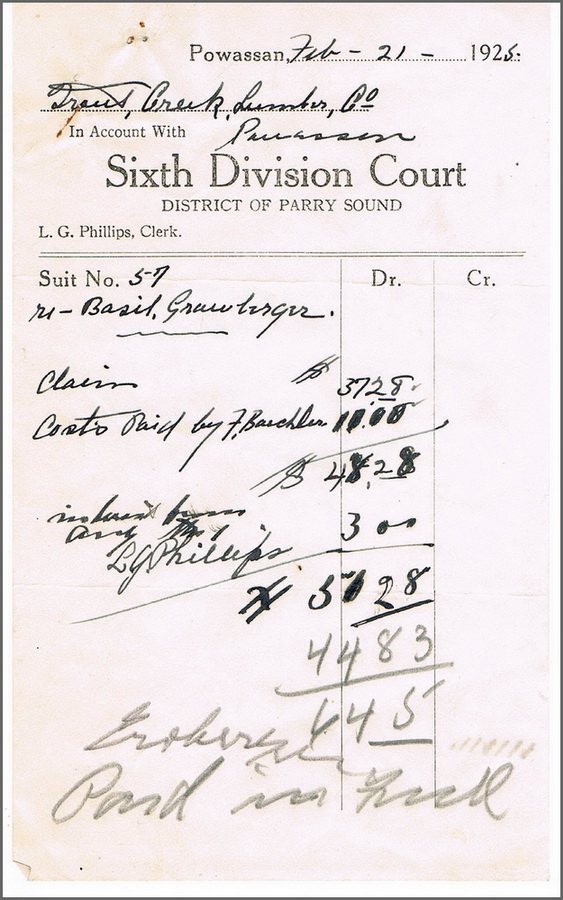 Powassan, Feb - 21 - 1925.
Trout, Creek, Lumber, Co
In Account With Powassan
Sixth Division Court
DISTRICT OF PARRY SOUND
L. G. Phillips, Clerk.
Suit No. 57 Dr. Cr.
re - Basil, Grawberger.
Claim $ 37.28
Costs Paid by F. Baechler 11.00
$ 48.28
interest from
Aug 3 00
L G Phillips
51 28
44 83
6 45
Paid in Full